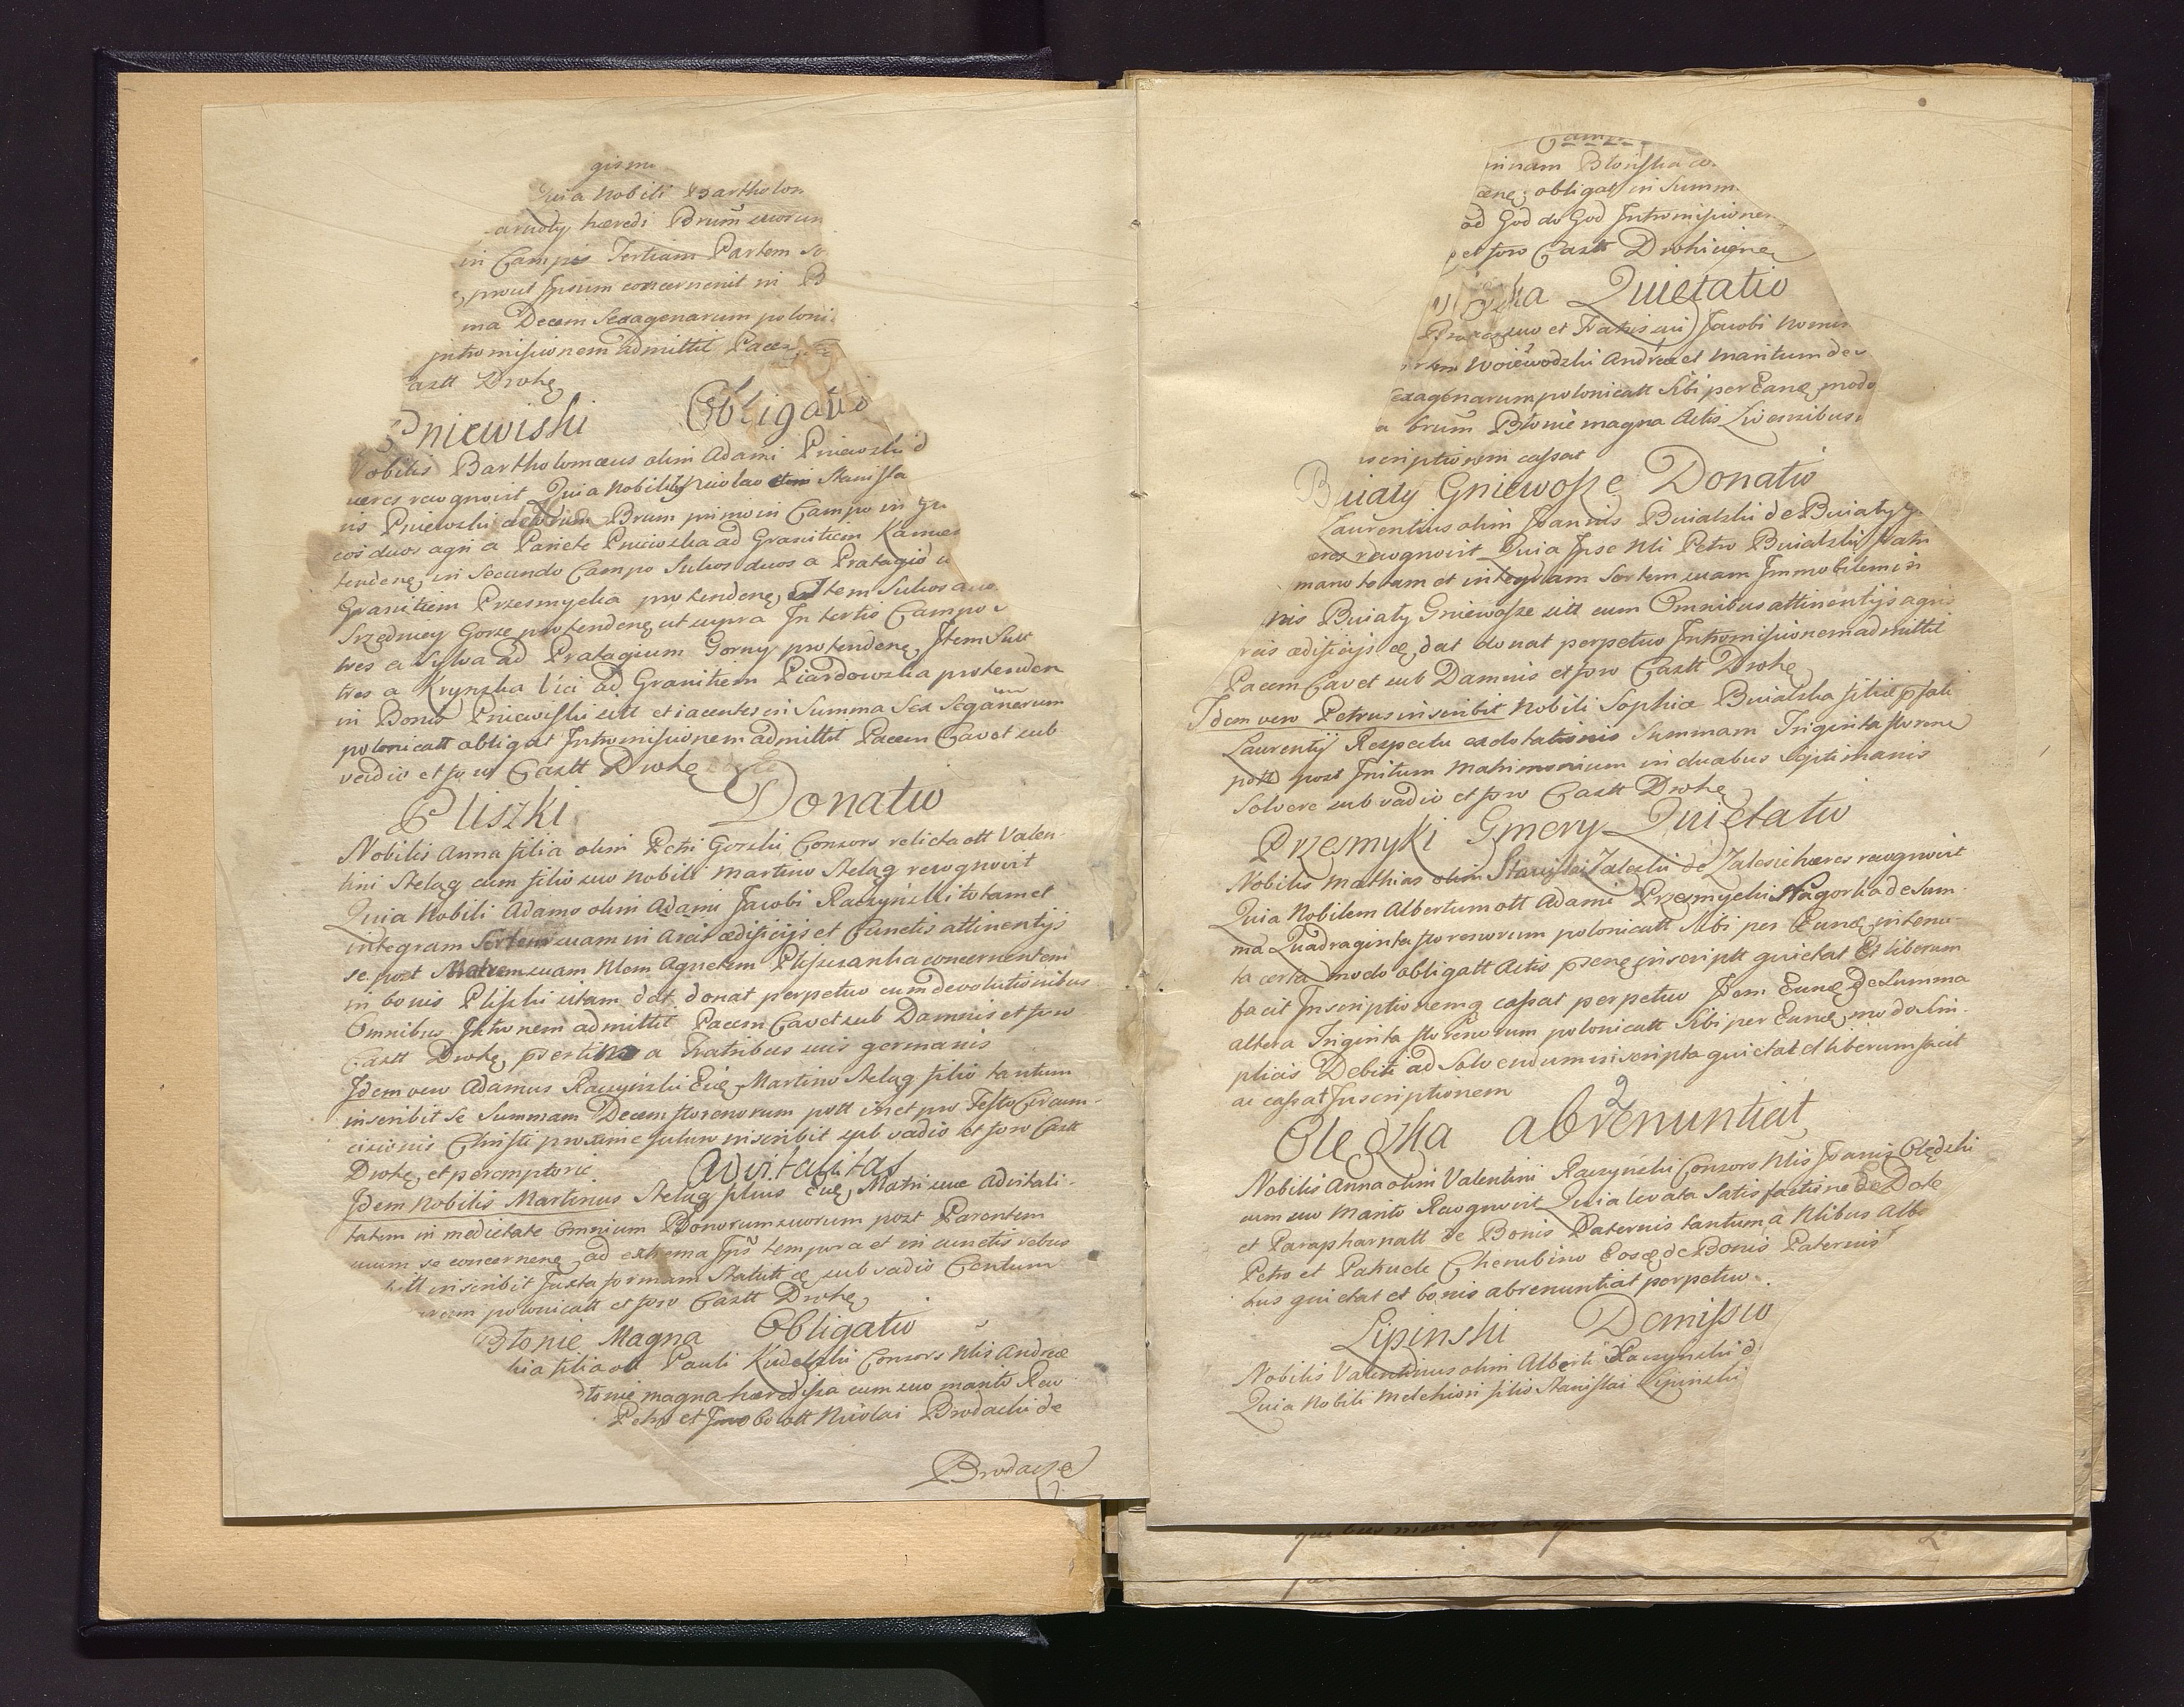 gism
Quia Nobili Bartholom
arudy hæredi Brum suorum
in Campis Tertiam Partem So
prout Ipsum concernenit in B
ma Decem Sexagenarum poloni
Intromissionem admittit Pacem
astt Drohę
Pniewiski Obligatio
Nobilis Bartholomæus olim Adami Pniewski d
hæres recognovit Quia Nobili Nicolao olim Stanisla
is Pniewski Brum primo in Campo in
cos duos agri a Pariete Pniewska ad Granitiem Kamien
tendenę, in Secundo Campo Sulcos duos a Pratagio u
Granitiem Przesmycka protendenę, Item Sulcos duo
Srzedniey Gorze protendenę ut supra In tertio Campo
tres a Sylva ad Pratagium Gorny protendenę, Item Sulc
tres a Krynska Vici ad Granitiem Piardowska protenden
in Bonis Pniewisski sitt et iacentes in Summa Sex Segänarum
polonicatt obligat Intromissionem admittit Pacem Cavet sub
vadio et foro Castt Drohę
Pliszki Donatio
Nobilis Anna filia olim Petri Gorski Consors relicta ott Valen-
tini Stelag cum filio suo Nobili Martino Stelag recognovit
Quia Nobili Adamo olim Adami Jacobi Raczynski totam et
integram Sortem suam in Areis ædificijs et Cunctis attinentijs
se post Matrem suam Nlem Agnetem Pliszczanka concernentem
in bonis Plisski sitam dat donat perpetuo cum devolutionibus
Omnibus Intronem admittit Pacem Cavet sub Damnis et foro
Castt Drohę, psertim a Fratribus suis germanis
Idem vero Adamus Raczynski Eidę Martino Stelag filio tantum
inscribit se Summam Decem florenorum pott in et pro Festo Circum-
cisionis Christi proxime futuro inscribit sub vadio et foro Castt
Drohę, et peremptorie Advitalitas
Idem Nobilis Martinus Stelag filius Eidę, Matri suæ advitali-
tatem in medietate Omnium Bonorum suorum post Parentem
suum se concernenę, ad extrema Ips tempora et in cunctis rebus
tt inscribit Juxta formam Statuti æ sub vadio Centum
arcum polonicatt et foro Castt Drohę
Błonie Magna Obligatio
hia filia ott Pauli Kudelski Consors Nlis Andreæ
błonie magna hæredissa cum suo marito Reco
Petro et Jacobo ott Nicolai Brodacki de
Brodacze
Camp
ninam Błonska co
enę, obligat in Summ
ad God do God Intromissionem
et foro Castt Drohicienę
ska Quietatio
Pro et Fratris sui Jacobi Nomin
Woiewodzki Andreæ et Maritum de
exagenarum polonicatt Sibi per Eunę, modo
a brum Błonie magna Actis Liviensibus
nscriptionem cassat
Buiały Gniewosze Donatio
Laurentius olim Joannis Buialski de Buiały
eres recognovit Quia Ipse Nli Petro Buialski fratri
mano totam et integram Sortem suam Immobilem in
nis Buiały Gniewosze sitt cum Omnibus attinentijs agris
reis ædificijs æ, dat donat perpetuo Intromissionem admittit
Pacem Cavet sub Damnis et foro Castt Drohę
Idem vero Petrus inscribit Nobili Sophiæ Buialska filiæ pfati
Laurentij Respectu exdotationis Summam Triginta florenę
pott post Initum Matrimonium in duabus Septimanis
Solvere sub vadio et foro Castt Drohę
Przesmyki Gmery Quietatio
Nobilis Mathias olim Stanislai Zaleski de Zalesie hæres recognovit
Quia Nobilem Albertum ott Adami Przesmycki Nagorka de Sum-
ma Quadraginta florenorum polonicatt Sibi per Eunę, in tenu-
ta certa modo obligatt Actis psenę, inscriptt quietat Et liberum
facit Inscriptionemq cassat perpetuo Idem Eunę, De Summa
altera Triginta florenorum polonicatt Sibi per Eunę, modo Sim-
plicis Debiti ad Solvendum inscripta quietat et liberum facit
ac cassat Inscriptionem
2
Olędzka abrenuntiat
Nobilis Anna olim Valentini Raczynski Consors Nlis Joanis Olędzki
cum suo Marito Recognovit Quia levata Satisfactione De Dote
et Parapharnatt De Bonis Paternis tantum à Nlibus Albe
Petro et Patruele Cherubino Eosq de Bonis Paternis
bus quietat et bonis abrenuntiat perpetuo.
Lipinski Demissio
Nobilis Valentinus olim Alberti Raczynski d
Quia Nobili Melchiori filio Stanislai Lipinski